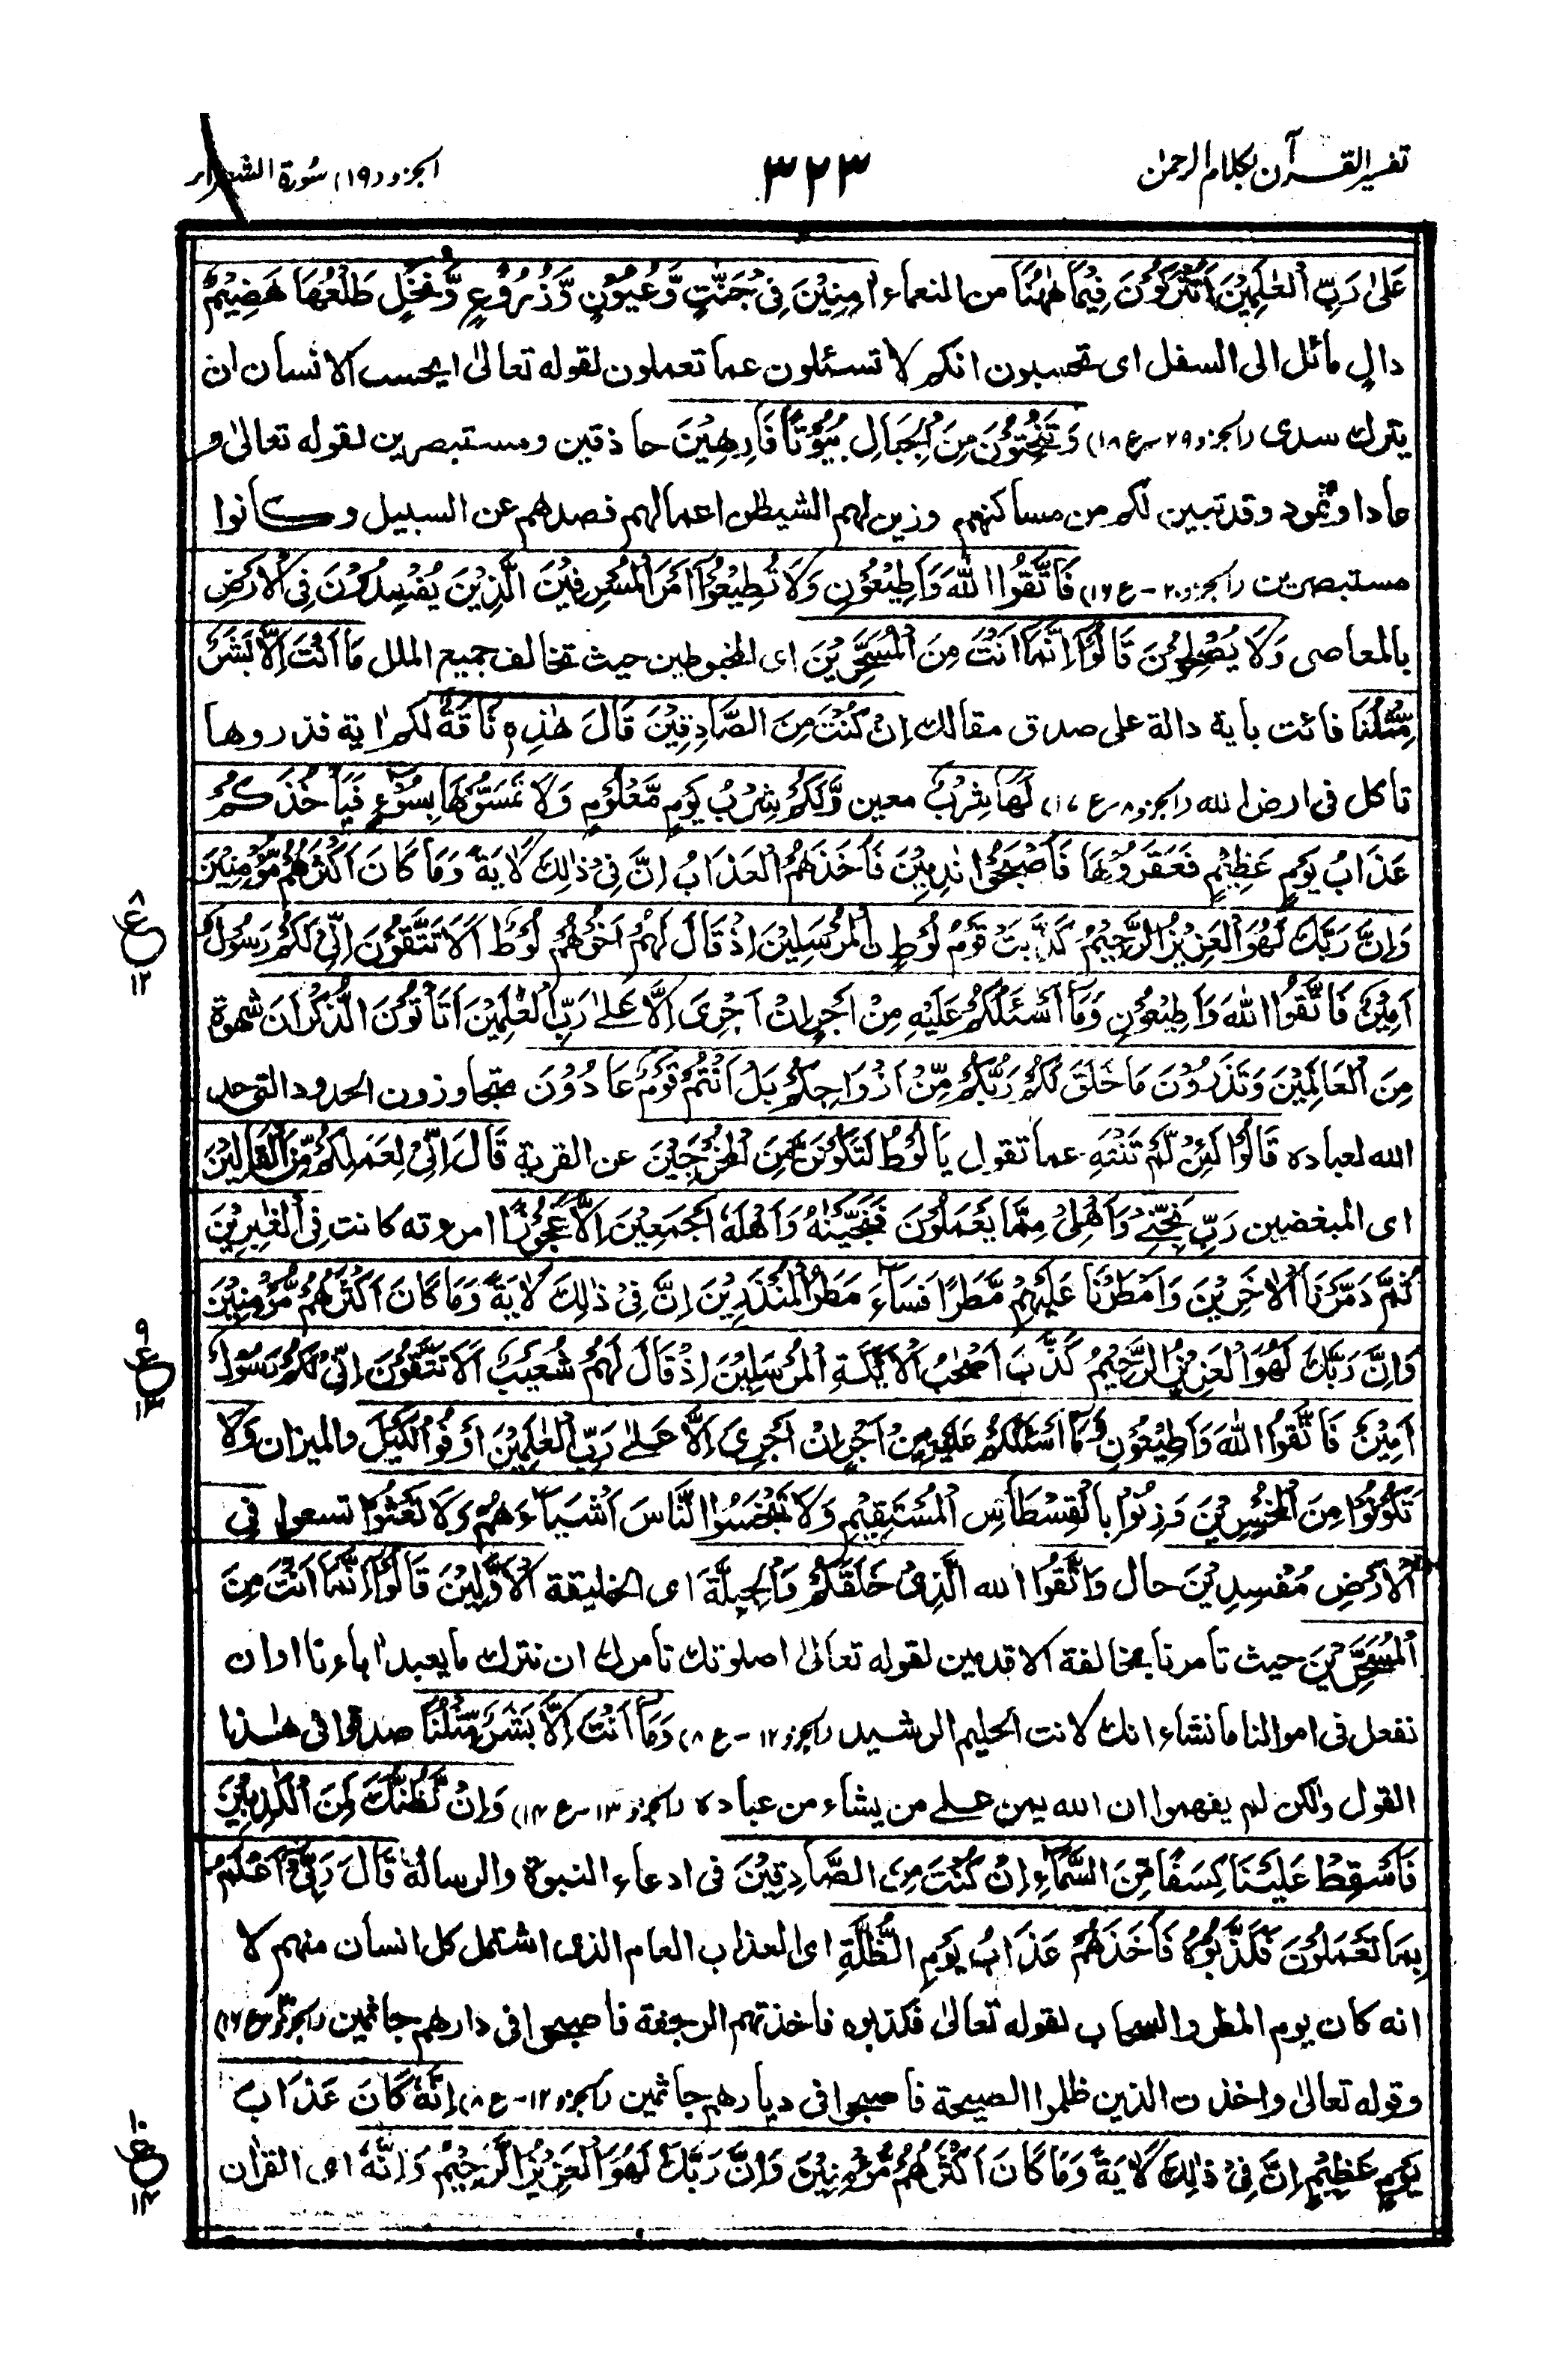 تفسیر القرآن بکلام الرحمٰن
۳۲۳
الجزو (۱۹) سُورة الشعراء
عَلٰى رَبِّ الْعٰلَمِيْنَ اَتُتْرَكُوْنَ فِيْمَا هٰهُنَا من النعماء اٰمِنِيْنَ فِیْ جَنّٰتٍ وَّعُيُوْنٍ وَّزُرُوْعٍ وَّنَخْلٍ طَلْعُهَا هَضِيْمٌ
دالٍ مائل الى السفل اى تحسبون انكم لا تسئلون عما تعملون لقوله تعالىٰ ايحسب الانسان ان
يترك سدى (الجزو ۲۹-ع ۱۸) وَتَنْحِتُوْنَ مِنَ الْجِبَالِ بُيُوْتًا فَارِهِيْنَ حاذقين ومستبصرين لقوله تعالىٰ و
عادا وثمود وقد تبين لكم من مساكنهم وزين لهم الشيطٰن اعمالهم فصدهم عن السبيل وكانوا
مستبصرين (الجزو ۲۰-ع ۱۶) فَاتَّقُوا اللهَ وَاَطِيْعُوْنِ وَلَا تُطِيْعُوْا اَمْرَ الْمُسْرِفِيْنَ الَّذِيْنَ يُفْسِدُوْنَ فِى الْاَرْضِ
بالمعاصى وَلَا يُصْلِحُوْنَ قَالُوْا اِنَّمَا اَنْتَ مِنَ الْمُسَحَّرِيْنَ اى المخبوطين حيث تخالف جميع الملل مَا اَنْتَ اِلَّا بَشَرٌ
مِّثْلُنَا فائت باٰية دالة على صدق مقالك اِنْ كُنْتَ مِنَ الصَّادِقِيْنَ قَالَ هٰذِهٖ نَاقَةٌ لكم اٰية فذروها
تاكل فى ارض الله (الجزو ۸-ع ۱۷) لَهَا شِرْبٌ معين وَّلَكُمْ شِرْبُ يَوْمٍ مَّعْلُوْمٍ وَلَا تَمَسُّوْهَا بِسُوْءٍ فَيَأْخُذَكُمْ
عَذَابُ يَوْمٍ عَظِيْمٍ فَعَقَرُوْهَا فَاَصْبَحُوْا نٰدِمِيْنَ فَاَخَذَهُمُ الْعَذَابُ اِنَّ فِیْ ذٰلِكَ لَاٰيَةً وَمَا كَانَ اَكْثَرُهُمْ مُّؤْمِنِيْنَ
وَاِنَّ رَبَّكَ لَهُوَ الْعَزِيْزُ الرَّحِيْمُ كَذَّبَتْ قَوْمُ لُوْطِ نِ الْمُرْسَلِيْنَ اِذْ قَالَ لَهُمْ اَخُوْهُمْ لُوْطٌ اَلَا تَتَّقُوْنَ اِنِّىْ لَكُمْ رَسُوْلٌ
اَمِيْنٌ فَاتَّقُوا اللهَ وَاَطِيْعُوْنِ وَمَا اَسْئَلُكُمْ عَلَيْهِ مِنْ اَجْرٍ اِنْ اَجْرِىَ اِلَّا عَلٰى رَبِّ الْعٰلَمِيْنَ اَتَأْتُوْنَ الذُّكْرَانَ شهوة
مِنَ الْعَالَمِيْنَ وَتَذَرُوْنَ مَا خَلَقَ لَكُمْ رَبُّكُمْ مِّنْ اَزْوَاجِكُمْ بَلْ اَنْتُمْ قَوْمٌ عَادُوْنَ متجاوزون الحدود التى حد
الله لعباده قَالُوْا لَئِنْ لَّمْ تَنْتَهِ عما تقول يَا لُوْطُ لَتَكُوْنَنَّ مِنَ الْمُخْرَجِيْنَ عن القرية قَالَ اِنِّىْ لِعَمَلِكُمْ مِّنَ الْقَالِيْنَ
اى المبغضين رَبِّ نَجِّنِىْ وَاَهْلِىْ مِمَّا يَعْمَلُوْنَ فَنَجَّيْنٰهُ وَاَهْلَهٗ اَجْمَعِيْنَ اِلَّا عَجُوْزًا امروته كانت فِى الْغٰبِرِيْنَ
ثُمَّ دَمَّرْنَا الْاٰخَرِيْنَ وَاَمْطَرْنَا عَلَيْهِمْ مَّطَرًا فَسَاءَ مَطَرُ الْمُنْذَرِيْنَ اِنَّ فِیْ ذٰلِكَ لَاٰيَةً وَمَا كَانَ اَكْثَرُهُمْ مُّؤْمِنِيْنَ
وَاِنَّ رَبَّكَ لَهُوَ الْعَزِيْزُ الرَّحِيْمُ كَذَّبَ اَصْحٰبُ الْاَيْكَةِ الْمُرْسَلِيْنَ اِذْ قَالَ لَهُمْ شُعَيْبٌ اَلَا تَتَّقُوْنَ اِنِّىْ لَكُمْ رَسُوْلٌ
اَمِيْنٌ فَاتَّقُوا اللهَ وَاَطِيْعُوْنِ وَمَا اَسْئَلُكُمْ عَلَيْهِ مِنْ اَجْرٍ اِنْ اَجْرِىَ اِلَّا عَلٰى رَبِّ الْعٰلَمِيْنَ اَوْفُوا الْكَيْلَ والميزان وَلَا
تَكُوْنُوْا مِنَ الْمُخْسِرِيْنَ وَزِنُوْا بِالْقِسْطَاسِ الْمُسْتَقِيْمِ وَلَا تَبْخَسُوا النَّاسَ اَشْيَاءَهُمْ وَلَا تَعْثَوْا تسعوا فِى
الْاَرْضِ مُفْسِدِيْنَ حال وَاتَّقُوا الله الَّذِىْ خَلَقَكُمْ وَالْجِبِلَّةَ اى الخليقة الْاَوَّلِيْنَ قَالُوْا اِنَّمَا اَنْتَ مِنَ
الْمُسَحَّرِيْنَ حيث تامرنا بمخالفة الاقدمين لقوله تعالىٰ اصلوتك تامرك ان نترك ما يعبد اٰباءنا او ان
نفعل فى اموالنا ما نشاء انك لانت الحليم الرشيد (الجزو ۱۲-ع ۸) وَمَا اَنْتَ اِلَّا بَشَرٌ مِّثْلُنَا صدقوا فى هٰذا
القول ولكن لم يفهموا ان الله يمن على من يشاء من عباده (الجزو ۱۳-ع ۱۴) وَاِنْ نَّظُنُّكَ لَمِنَ الْكٰذِبِيْنَ
فَاَسْقِطْ عَلَيْنَا كِسَفًا مِّنَ السَّمَاءِ اِنْ كُنْتَ مِنَ الصَّادِقِيْنَ فى ادعاء النبوة والرسالة قَالَ رَبِّىْ اَعْلَمُ
بِمَا تَعْمَلُوْنَ فَكَذَّبُوْهُ فَاَخَذَهُمْ عَذَابُ يَوْمِ الظُّلَّةِ اى العذاب العام الذى اشتمل كل انسان منهم لا
انه كان يوم المطر والسحاب لقوله تعالىٰ فكذبوه فاخذتهم الرجفة فاصبحوا فى دارهم جاثمين
وقوله تعالىٰ واخذت الذين ظلموا الصيحة فاصبحوا فى ديارهم جاثمين (الجزو ۱۲-ع ۸) اِنَّهٗ كَانَ عَذَابَ
يَوْمٍ عَظِيْمٍ اِنَّ فِیْ ذٰلِكَ لَاٰيَةً وَمَا كَانَ اَكْثَرُهُمْ مُّؤْمِنِيْنَ وَاِنَّ رَبَّكَ لَهُوَ الْعَزِيْزُ الرَّحِيْمُ وَاِنَّهٗ اى القراٰن
۸
ع
۱۲
۹
ع
۱۳
۱۰
ع
۱۴